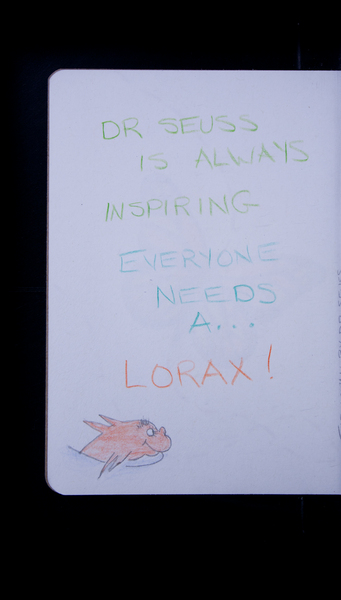 DR SEUSS
IS ALWAYS
INSPIRING
EVERYONE
NEEDS
A...
LORAX!